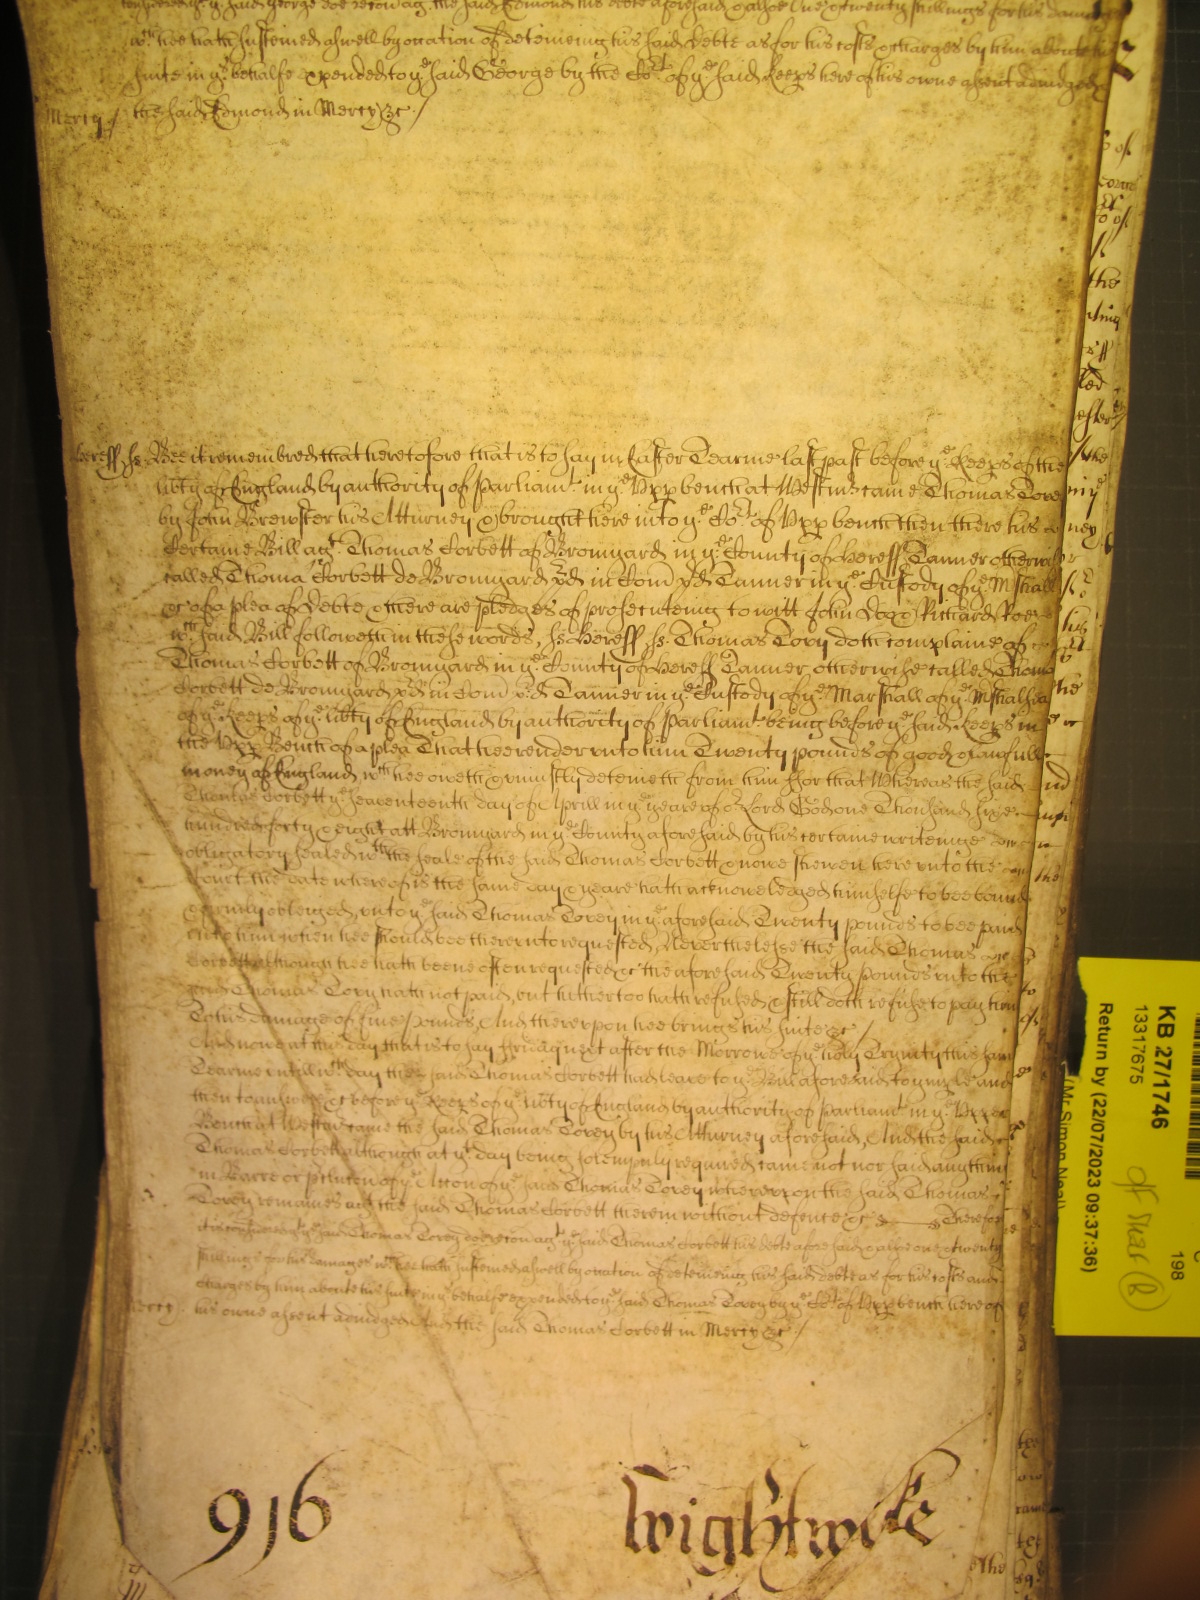 considered yt ye said George doe recov agt the said Edmond his debte aforesaid & alsoe One & twenty shillings for his damages
wch hee hath susteined aswell by occation of deteineing his said Debte as for his costs & charges by him aboute his
suite in ys behalfe expended to ye said George by the Cort of ye said Keeps here of his owne assent adiudged
Mercy / the said Edmond in Mercy &c /
Hereff ss Bee it remembred that heretofore that is to say in Easter Tearme last past before ye Keeps of the
libty of England by authority of Parliamt in ye Vpp bench at Westmr came Thomas Corey
by John Brewster his Atturney & brought here into ye Cort of Vpp bench then there his
Certaine Bill agt Thomas Corbett of Bromyard in ye County of Hereff Tanner otherwise
called Thoma Corbett de Bromyard pd in Com pd Tanner in ye Custody of ye Mshall
&c of a plea of Debte & there are pledges of prosecuteing to witt John Doo & Richard Roo
wch said Bill followeth in these words, ss Hereff ss Thomas Cory doth complaine of
Thomas Corbett of Bromyard in ye County of Hereff Tanner otherwise called Thoma
Corbett de Bromyard pd in Com pd Tanner in ye Custody of ye Marshall of ye Mshalsea
of ye Keeps of ye libty of England by authority of Parliamt being before ye said Keeps in
the Vpp Bench of a plea That hee render vnto him Twenty pounds of good & lawfull
money of England wch hee oweth & uniustly deteineth from him ffor that Whereas the said
Thomas Corbett ye seaventeenth day of Aprill in ye yeare of or Lord God one Thousand Sixe
hundred forty & eight att Bromyard in ye County aforesaid by his certaine writeinge
obligatory sealed wth the seale of the said Thomas Corbett & nowe shewen here vnto the
Court the date whereof is the same day & yeare hath acknowledged himselfe to bee bound
& firmly obleiged vnto ye said Thomas Corey in ye aforesaid Twenty pounds to bee paid
vnto him when hee should bee therevnto requested, Neverthelesse the said Thomas
Corbett although hee hath beene often requested &c the aforesaid Twenty pounds vnto the
said Thomas Cory hath not paid, but hithertoo hath refused & still doth refuse to pay him
To his damage of five Pounds, And therevpon hee brings his suite &c /
And nowe at this day that is to say ffriday next after the Morrowe of ye holy Trinity this same
Tearme vntill wch day the said Thomas Corbett had leave to ye Bill aforesaid to imple and
then to answere &c before ye Keeps of ye libty of England by authority of Parliamt in ye Vpper
Bench at Westmr came the said Thomas Corey by his Atturney aforesaid, And the said
Thomas Corbett although at yt day being solemnly required came not nor said anything
in Barre or p'clusion of ye Accon of ye said Thomas Corey wherevpon the said Thomas
Corey remaines agt the said Thomas Corbett therein without defence &c Therefore
it is considered yt ye said Thomas Corey doe recov agt ye said Thomas Corbett his debte aforesaid & alsoe one & twenty
shillings for his damages wch hee hath susteined aswell by occation of deteineing his said debte as for his costs and
charges by him aboute his suite in ys behalfe expended to ye said Thomas Corey by ye Cort of Vpp bench here of
Mercy his owne assent adiudged And the said Thomas Corbett in Mercy &c /
916 Wightwicke
KB 27/1746
13317675
198
Return by (22/07/2023 09:37:36)
(Mr Simon Neal)